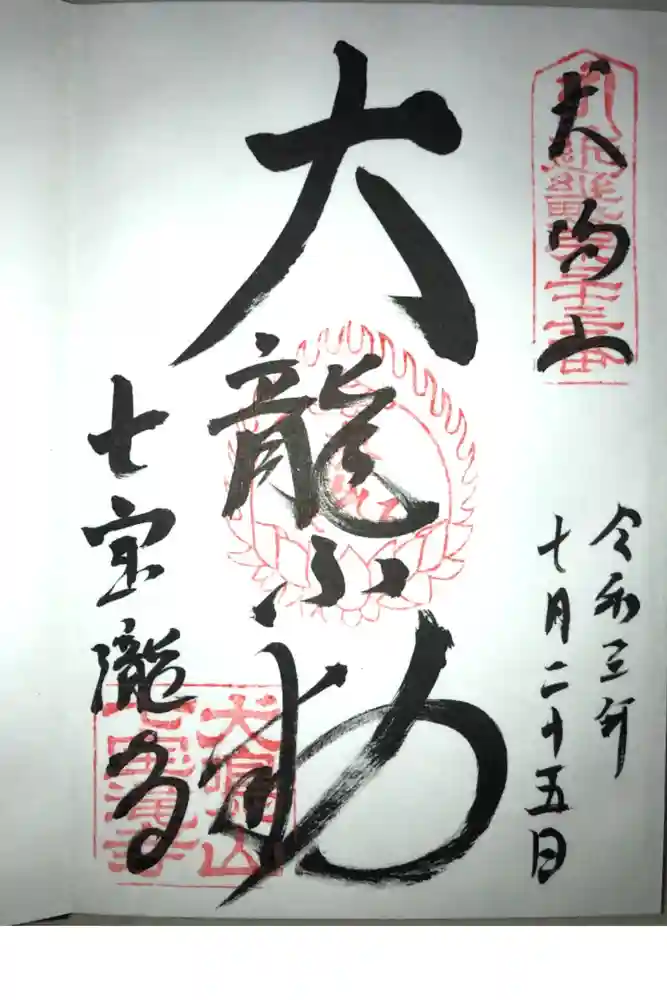 犬鳴山
令和三年
七月二十五日
大龍不動
七宝瀧寺
犬鳴山